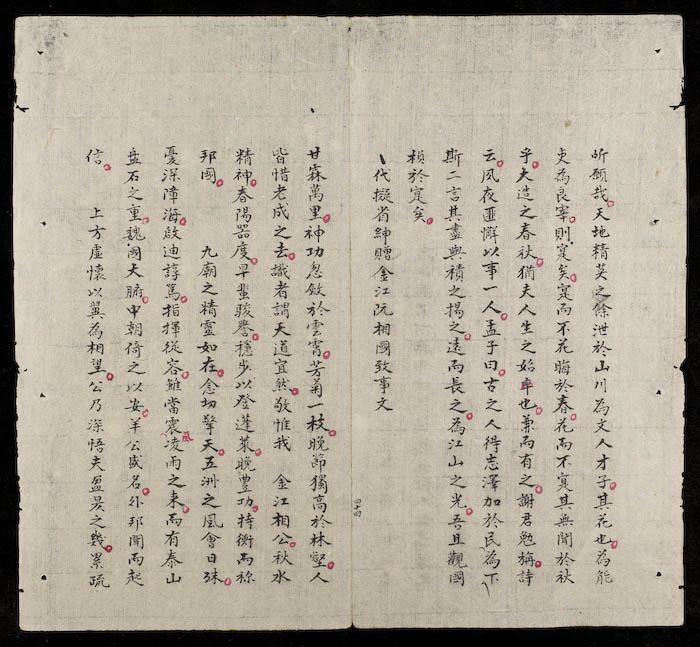 所願哉天地精英之餘泄於山川為文人才子其花也為能
吏為良宰則寔矣寔而不花晦於春花而不寔其無聞於秋
乎夫造之春秋猶夫人生之始卒也兼而有之謝君勉旃詩
云夙夜匪懈以事一人孟子曰古之人得志澤加於民為下
斯二言其盡與積之揚之遠而長之為江山之光吾且觀國
楨於寔矣
代擬省紳贈金江阮相國致事文
四十四
甘霖萬里神功忽斂於雲霄芳菊一枝晚節獨高於林壑人
皆惜老成之去識者謂天道宜然敬惟我 金江相公秋水
精神春陽器度早蜚駿譽穩步以登蓬萊晚豊功持衡而祢
邦國 九廟之精靈如在念切擎天五洲之風會日殊
憂深障海啟迪諄篤指揮從容雖當震凌風雨之来而有泰山
盘石之重魏國大腑中朝倚之以安羊公盛名外邦聞而起
信 上方虚懷以翼為相望公乃深悟夫盈昃之幾累疏